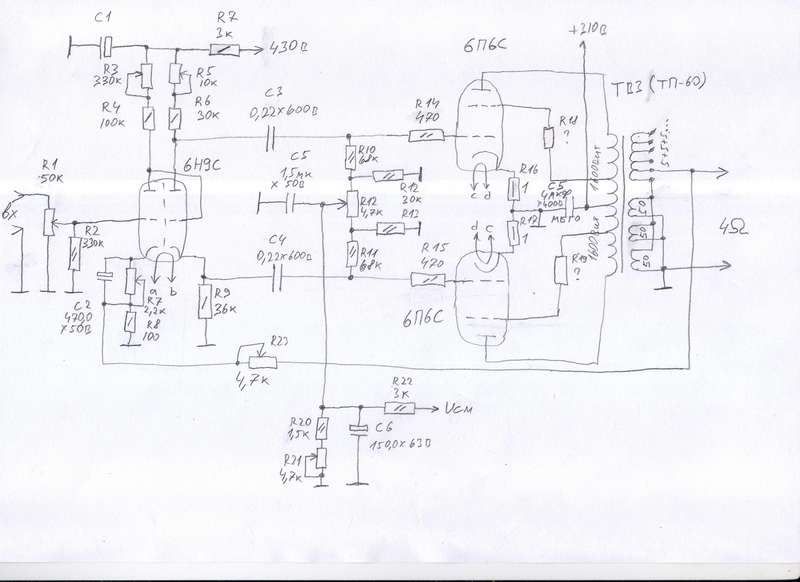 C1
R7
3к
430В
R3
330к
R5
10к
R4
100к
R6
30к
C3
0,22×600В
6Н9С
R1
50к
Вх
R2
330к
C2
470,0
×50В
a
b
R7
2,2к
R8
100
R9
36к
C5
1,5мк
×50В
C4
0,22×600В
R10
68к
R12
30к
R12
4,7к
R13
R11
68к
R14
470
R15
470
6П6С
6П6С
c
d
d
c
R16
1
R17
1
C5
×400В
МБГО
R18
?
R19
?
+310В
ТВЗ (ТП-60)
1600вит
1600вит
5+5+5...
50
50
50
4Ω
R23
4,7к
R22
3к
Uсм
R20
1,5к
R21
4,7к
C6
150,0×63В